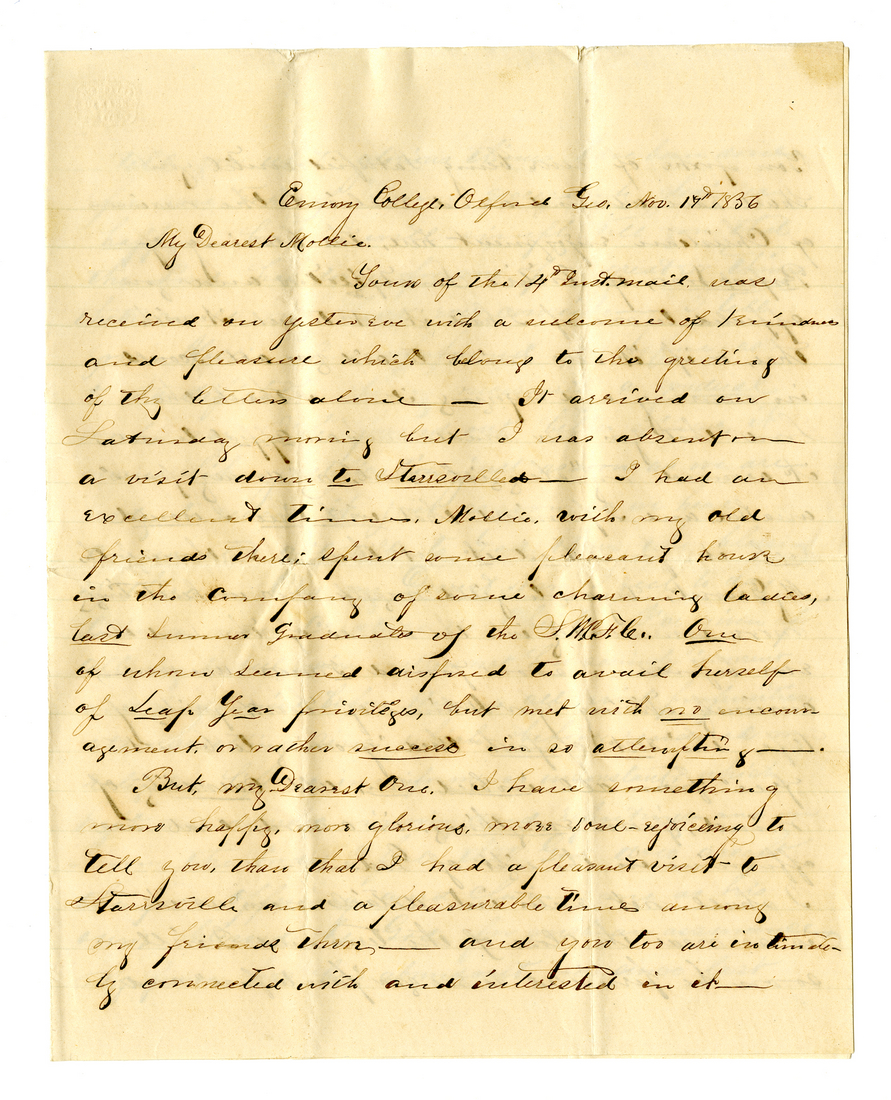 Emory College, Oxford Geo, Nov. 17th 1856
My Dearest Mollie.
Yours of the 14th Inst. mail. was
received on yester eve with a welcome of Kindness
and pleasure which belongs to the greeting
of thy letters alone — It arrived on
Saturday moring but I was absent on
a visit down to Starrsville — I had an
excellent time, Mollie, with my old
friends there; spent some pleasant hours
in the company of some charming ladies,
last Summer Graduates of the S. M. F. C.. One
of whom seemed disposed to avail herself
of Leap Year priviliges, but met with no encour-
agement, or rather success in so attempting —.
But, my Dearest One, I have something
more happy, more glorious, more soul-rejoicing to
tell you, than that I had a pleasant visit to
Starrsville and a pleasurable time among
my friends there, — and you too are intimate-
ly connected with and interested in it —